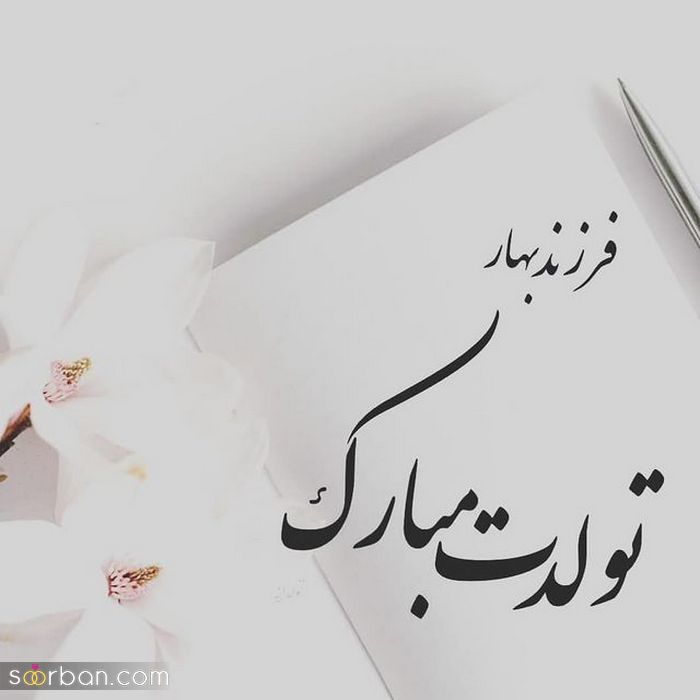 فرزند بهار
تولدت مبارک
تولدانه
soorban.com